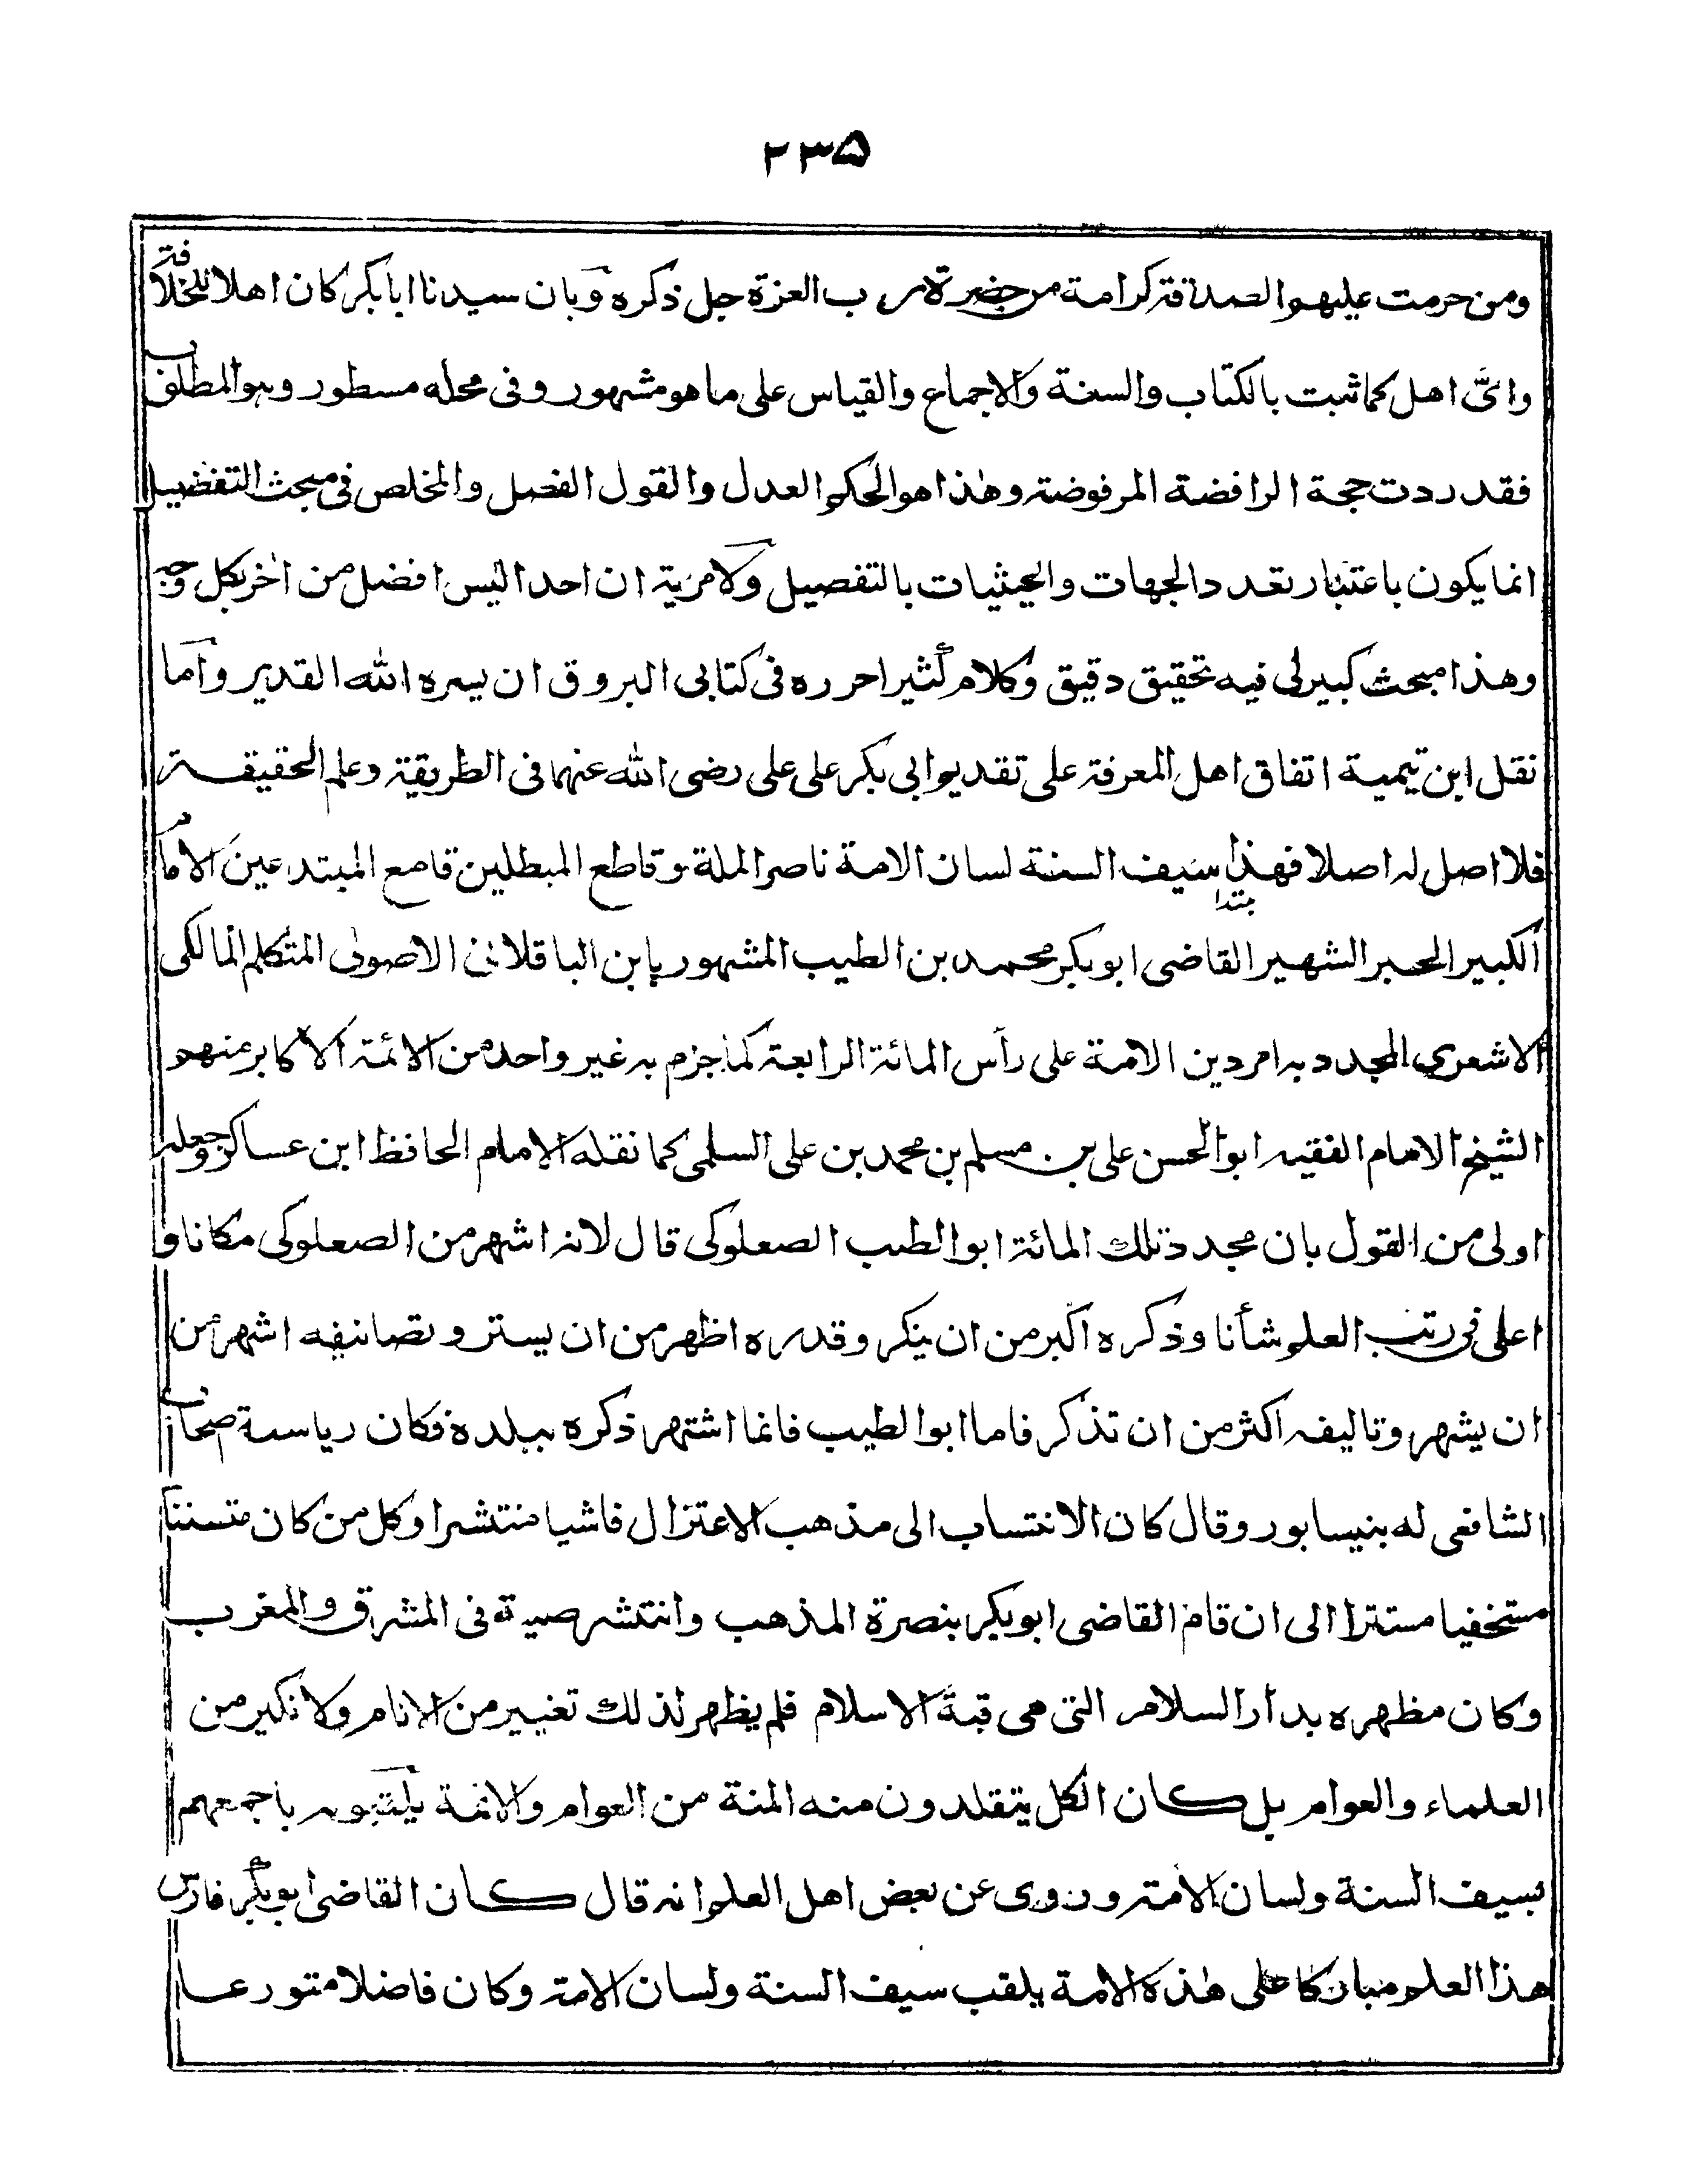 ٢٣٥
ومن حرمت عليهم الصدقة كرامة من حضرة رب العزة جل ذكره وبان سيدنا ابا بكر كان اهلا للخلافة
واىّ اهل كما ثبت بالكتاب والسنة والاجماع والقياس على ما هو مشهور وفى محله مسطور وهو المطلوب
فقد ردت حجة الرافضة المرفوضة وهذا هو الحكم العدل والقول الفصل والمخلص فى مبحث التفضيل
انما يكون باعتبار تعدد الجهات والحيثيات بالتفصيل ولا مزية ان احدا ليس افضل من اخر بكل وجه
وهذا مبحث كبير لى فيه تحقيق دقيق وكلام كثير احرره فى كتابى البروق ان يسره الله القدير واما
نقل ابن تيمية اتفاق اهل المعرفة على تقديم ابى بكر على على رضى الله عنهما فى الطريقة وعلم الحقيقة
فلا اصل له اصلا فهذا سيف السنة لسان الامة ناصر الملة وقاطع المبطلين قامع المبتدعين الامام
مبتدا
الكبير الحبر الشهير القاضى ابو بكر محمد بن الطيب المشهور بابن الباقلانى الاصولى المتكلم المالكى
الاشعرى المجدد به امر دين الامة على رأس المائة الرابعة كما جزم به غير واحد من الائمة الاكابر منهم
الشيخ الامام الفقيه ابو الحسن على بن مسلم بن محمد بن على السلمى كما نقله الامام الحافظ ابن عساكر وجعله
اولى من القول بان مجدد تلك المائة ابو الطيب الصعلوكى قال لانه اشهر من الصعلوكى مكانا و
اعلى فى رتب العلم شأنا وذكره اكبر من ان ينكر وقدره اظهر من ان يستر وتصانيفه اشهر من
ان يشهر وتاليفه اكثر من ان تذكر فاما ابو الطيب فانما اشتهر ذكره ببلده فكان رياسة اصحاب
الشافعى له بنيسابور وقال كان الانتساب الى مذهب الاعتزال فاشيا منتشرا وكل من كان متسننا
مستخفيا مستترا الى ان قام القاضى ابو بكر بنصرة المذهب وانتشر صيته فى المشرق والمغرب
وكان مظهره بدار السلام التى هى قبة الاسلام فلم يظهر لذلك تغيير من الانام ولا نكير من
العلماء والعوام بل كان الكل يتقلدون منه المنة من العوام والائمة يلقبونه باجمعهم
بسيف السنة ولسان الامة وروى عن بعض اهل العلم انه قال كان القاضى ابو بكر فارس
هذا العلم مباركا على هذه الامة يلقب سيف السنة ولسان الامة وكان فاضلا متورعا